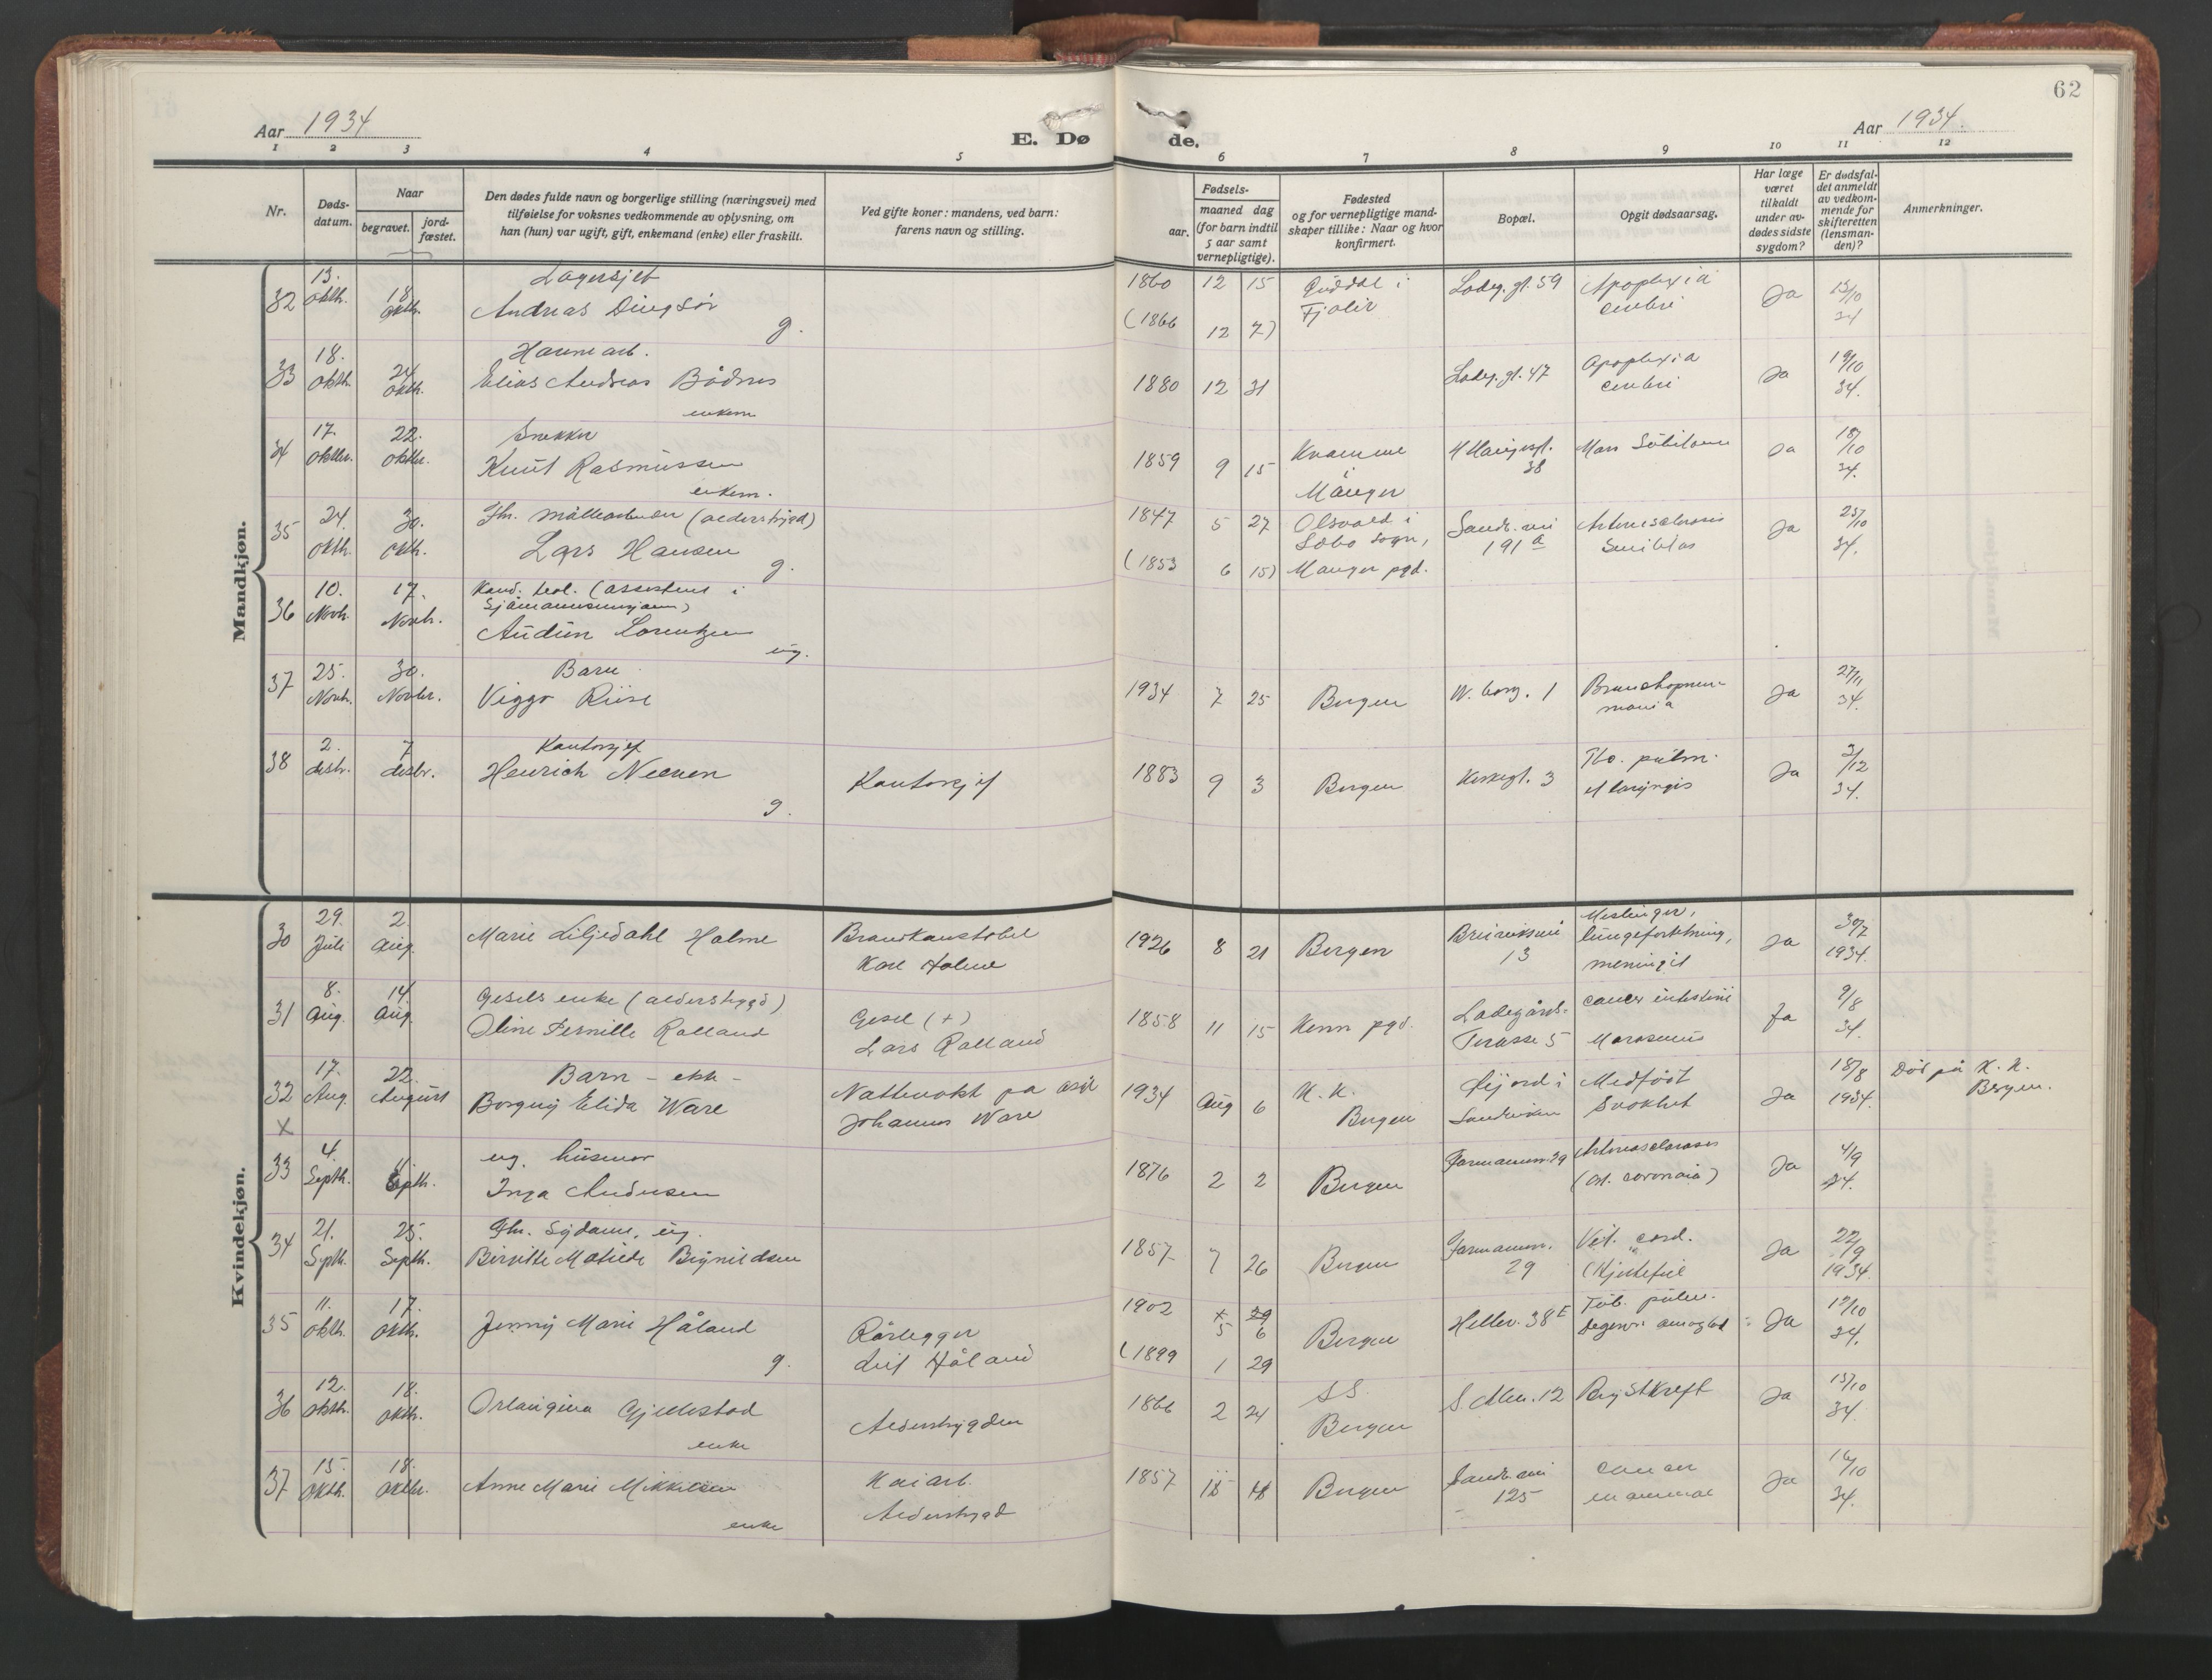 62
Aar 1934
E. Dø
de.
Aar 1934.
1 2 3 4 5 6 7 8 9 10 11 12
Nr.
Døds-
datum.
Naar
begravet.
jord-
fæstet.
Den dødes fulde navn og borgerlige stilling (næringsvei) med
tilføielse for voksnes vedkommende av oplysning, om
han (hun) var ugift, gift, enkemand (enke) eller fraskilt.
Ved gifte koner: mandens, ved barn:
farens navn og stilling.
Fødsels-
aar.
maaned dag
(for barn indtil
5 aar samt
vernepligtige).
Fødested
og for vernepligtige mand-
skaper tillike: Naar og hvor
konfirmert.
Bopæl.
Opgit dødsaarsag.
Har læge
været
tilkaldt
under av-
dødes sidste
sygdom?
Er dødsfal-
det anmeldt
av vedkom-
mende for
skifteretten
(lensman-
den)?
Anmerkninger.
Mandkjøn.
32 13. oktb. 18 oktb. Lagersjef
Andreas Dingsör g.
1860 12 15
(1866 12 7)
Guddal i
Fjaler
Ladeg. gt. 59
Apoplexia
cerebri
Ja 15/10 34
33 18. oktb. 24 oktb. Havnearb.
Elias Andreas enkem
1880 12 31
Ladeg. gt. 47
Apoplexia
cerebri
Ja 19/10 34.
34 17. oktbr. 22. oktbr. Snekker
Knut Rasmussen enkem.
1859 9 15
Kvamme
i
Manger
38
Mars Sübitanea
Ja 18/10 34.
35 24. oktb. 30. oktb. Fhv. möllearbeider (alderstrygd)
Lars Hansen g.
1847 5 27
(1853 6 15)
Olsvold i
Sæbø sogn,
Manger pgd.
Sandv.vei
191 a
Arteriosclerosis
Senilitas
Ja 25/10 34.
36 10. Novb. 17. Novb. Kand. teol. (assistent i
Sjömannsmisjonen)
Audun Lorentzen ug.
37 25. Novb. 30. Novbr. Barn
Viggo Riise
1934 7 25
Bergen
W. borg. 1
Bronchopneu-
monia
Ja 27/11 34.
38 2. desb. 7 desbr. Kontorsjef
Henrich g.
Kontorsjef
1883 9 3
Bergen
Kirkegt. 3
Tbc. pulm.
et laryngis
Ja 3/12 34.
Kvindekjøn.
30 29. Juli 2 Aug.
Marie Liljedahl Holme
Brandkonstabel
Karl Holme
1926 8 21
Bergen
13
Meslinger,
lungebetennelse,
meningit
Ja 30/7 1934.
31 8. Aug. 14 Aug.
Gesels enke (alderstrygd)
Oline Pernille Rolland
Gesel (+)
Lars Rolland
1858 11 15
Kinn pgd.
Ladegårds-
Terasse 5
cancer intestini
Marasmus
Ja 9/8 34.
32 X 17. Aug. 22. August
Barn - ekte -
Borgny Elida Ware
Nattevakt på asyl
Johannes Ware
1934 Aug 6
K. K.
Bergen
i
Sandviken
Medfödt
Svakhet
Ja 18/8 1934.
Död på K. K.
Bergen.
33 4. Septb. 11 Septb.
ug. husmor
Inga Andersen
1876 2 2
Bergen
Formannsv. 29
Arteriosclerosis
(art. coronaria)
Ja 4/9 34.
34 21. Septb. 25. Septb.
Fhv. sydame, ug.
Birgitte Matilde Brynildsen
1857 7 26
Bergen
Formannsv.
29
Vit. cord.
(Hjertefeil
Ja 22/9 1934.
35 11. oktb. 17. oktb.
Jenny Marie Håland g.
Rörlegger
Leif Håland
1902 5 6
(1899 1 29
Bergen
Hellev. 38 E
Tub. pulm.
Ja 12/10 34.
36 12. oktb. 18. oktb.
Orlaugina Gjellestad enke
Alderstrygden
1866 2 24
SS
Bergen
S. Allen. 12
Brystkreft
Ja 13/10 34.
37 15. oktb. 18. oktbr.
Anne Marie Mikkelsen enke
Kaiarb.
Alderstrygd
1857 18
Bergen
Sandv.vei
125
cancer
mammae
Ja 16/10 34.